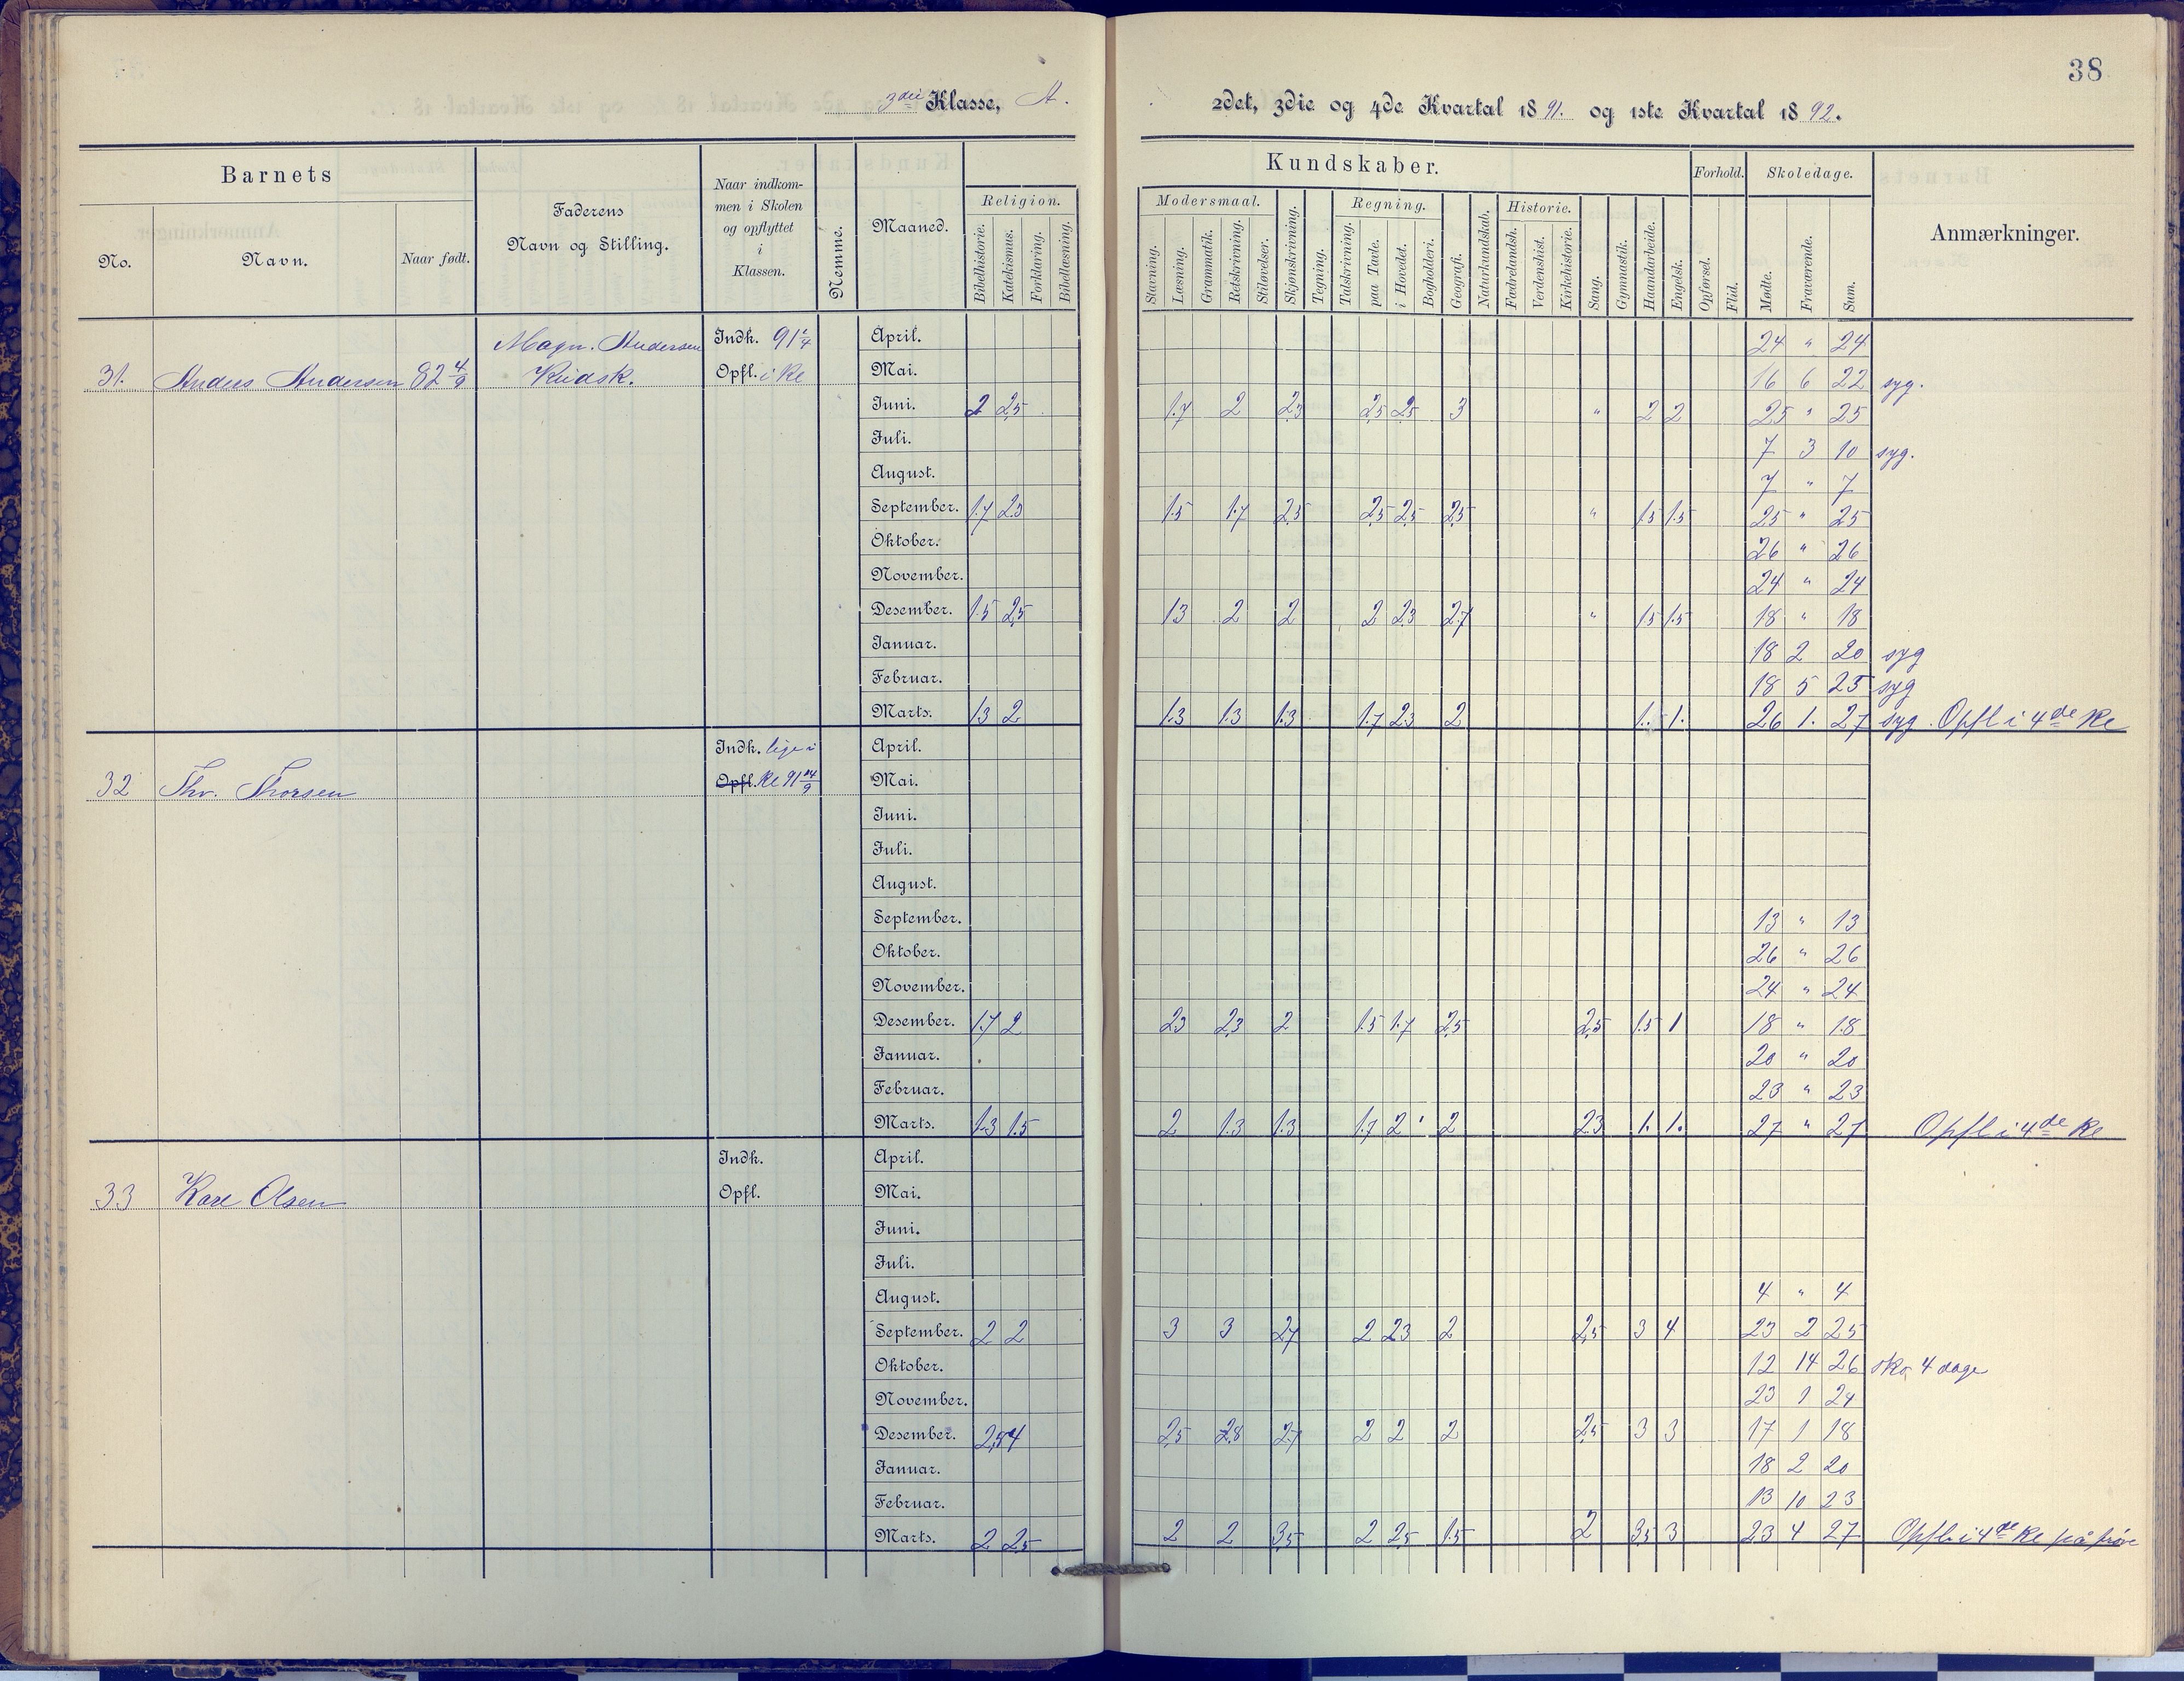 38
3die Klasse, A.
2det, 3die og 4de Kvartal 18 91. og 1ste Kvartal 18 92.
Barnets
No.
Navn.
Naar født.
Faderens
Navn og Stilling.
Naar indkom-
men i Skolen
og opflyttet
i
Klassen.
Nemme.
Maaned.
Religion.
Bibelhistorie.
Katekismus.
Forklaring.
Bibellæsning.
Kundskaber.
Modersmaal.
Stavning.
Læsning.
Grammatik.
Retskrivning.
Stiløvelser.
Skjønskrivning.
Tegning.
Regning.
Talskrivning.
paa Tavle.
i Hovedet.
Bogholderi.
Geografi.
Naturkundskab.
Historie.
Fædrelandsh.
Verdenshist.
Kirkehistorie.
Sang.
Gymnastik.
Haandarbeide.
Engelsk.
Forhold.
Opførsel.
Flid.
Skoledage.
Mødte.
Fraværende.
Sum.
Anmærkninger.
Magn. Andersen Indk. 91 April. 24 " 24
31. Anders Andersen 82 4/9 Kudsk. Opfl. i Kl Mai. 16 6 22 syg.
Juni. 2 2,5 1.7 2 2,3 2,5 2,5 3 " 2 2 25 " 25
Juli. 7 3 10 syg.
August. 7 " 7
September. 1.7 2.3 1.5 1.7 2,5 2,5 2,5 2,5 " 1.5 1.5 25 " 25
Oktober. 26 " 26
November. 24 " 24
Desember. 1.5 2,5 1.3 2 2 2 2.3 2.7 " 1.5 1.5 18 " 18
Januar. 18 2 20 syg
Februar. 18 5 23 syg
Marts. 1.3 2 1.3 1.3 1.3 1.7 2.3 2 1. 1. 26 1. 27 syg. Opfl i 4de Kl
Indk. lige i April.
32 Thv. Thorsen Opfl. Kl 91 14/9 Mai.
Juni.
Juli.
August.
September. 13 " 13
Oktober. 26 " 26
November. 24 " 24
Desember. 1.7 2 2.3 2.3 2 1.5 1.7 2,5 2,5 1.5 1 18 " 18
Januar. 20 " 20
Februar. 23 " 23
Marts. 1.3 1.5 2 1.3 1.3 1.7 2 2 2.3 1. 1. 27 " 27 Opfl i 4de Kl
Indk. April.
33 Karl Olsen Opfl. Mai.
Juni.
Juli.
August. 4 " 4
September. 2 2 3 3 2,7 2 2.3 2 2,5 3 4 23 2 25
Oktober. 12 14 26 sko, 4 dage
November. 23 1 24
Desember. 2,5 4 2,5 2,8 2,7 2 2 2 2,5 3 3 17 1 18
Januar. 18 2 20
Februar. 13 10 23
Marts. 2 2,5 2 2 3,5 2 2,5 1.5 2 3,5 3 23 4 27 Opfl. i 4de Kl på prøve